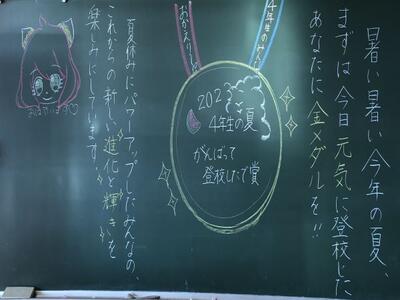 暑い暑い今年の夏、
まずは今日元気に登校した
あなたに金メダルを!!
4年生のみ
おかえり
202
4年生の夏
がんばって
登校したで賞
夏休みにパワーアップしたみんなの、
これからの新しい進化と輝きを
楽しみにしています。